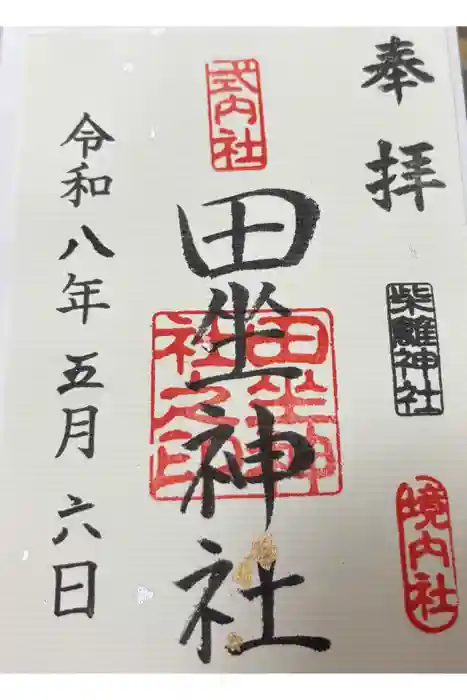 奉拝
柴籬神社
境内社
式内社
田坐神社
田坐神
社之印
令和八年五月六日